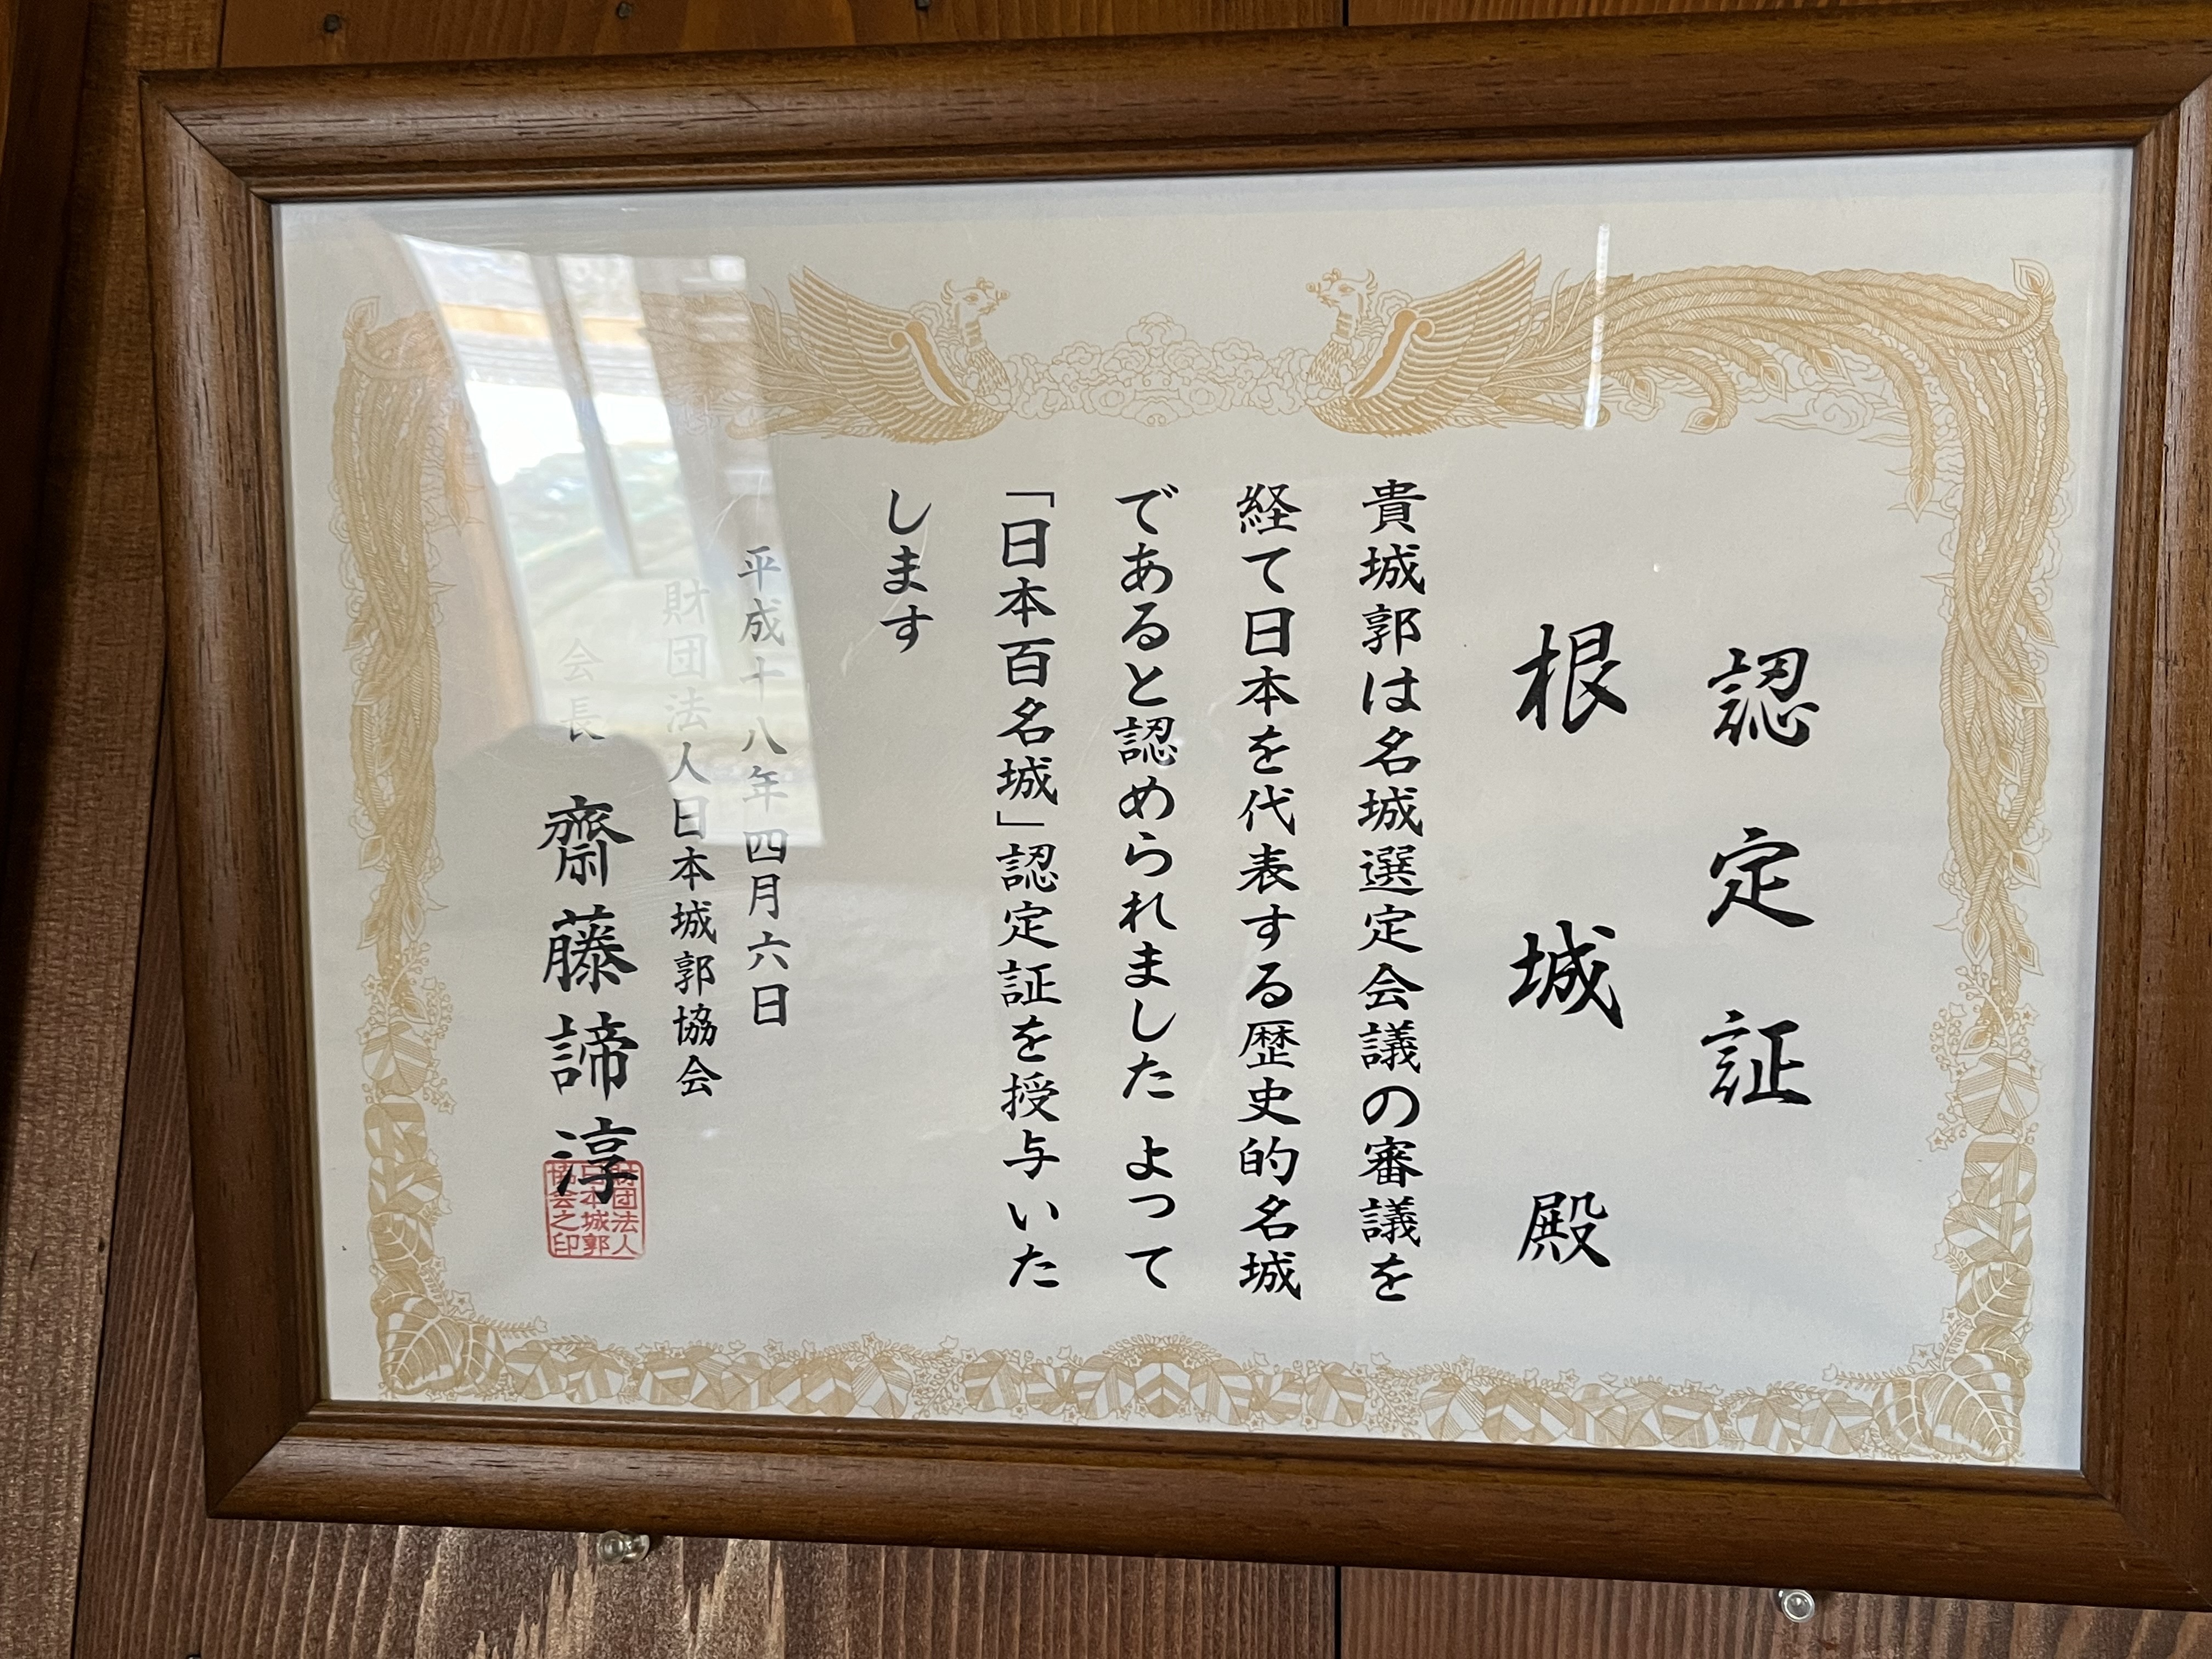 認定証
根城殿
貴城郭は名城選定会議の審議を
経て日本を代表する歴史的名城
であると認められました よって
「日本百名城」認定証を授与いた
します
平成十八年四月六日
財団法人日本城郭協会
会長 齋藤諦淳
財団法人
日本城郭
協会之印